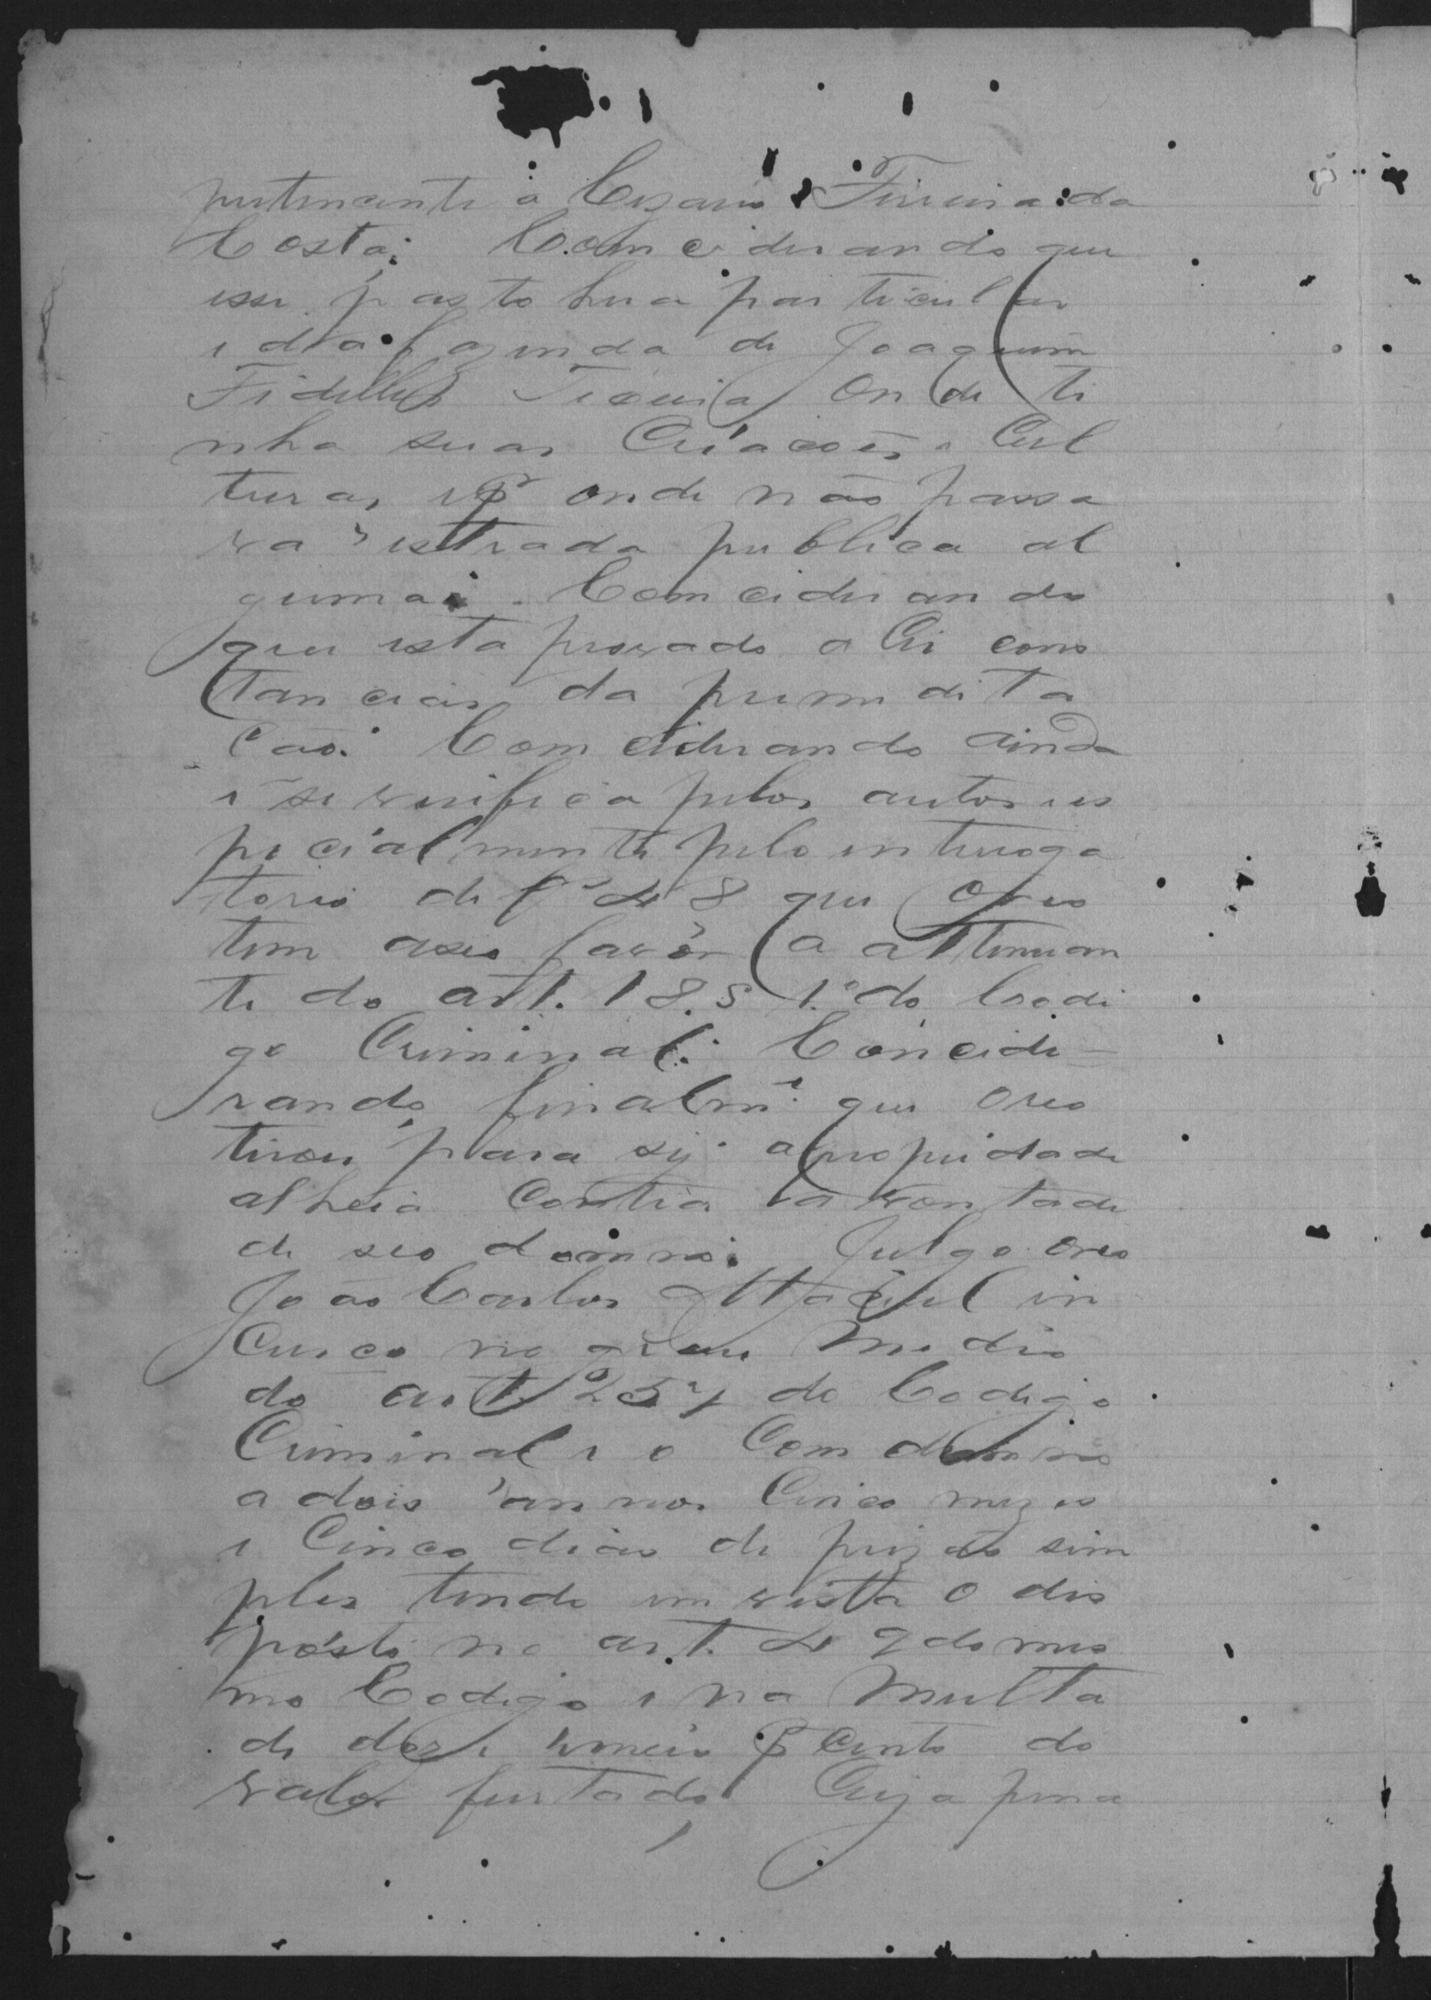 pertencente a Cezario Ferreira da
Costa; Comciderando que
esse pasto hera particular
e da fazenda de Joaquim
Fidelles Teixeira onde ti
nha suas Criacoes e Cul
turas e pr onde não passa
va estrada publica al
guma; Comciderando
que esta provado a Cir cons
tancias da premedita
Cão: Comciderando ainda
e se verifica pelos autos es
pecialmente pelo interroga
torio de fs 48 que o reo
tem aseo favôr a attenuan
te do art. 18. § 1.º do Codi
go Criminal: Concide
rando finalme. que oreo
tirou para sy a propriedade
alheia contra a vontade
de seo domno: Julgo oreo
João Carlos Maciel in
Curco no grau Medio
do art. 257 do Codigo
Criminal e o Comdemno
a dois annos Cinco mezes
e Cinco dias de prizão sim
ples tendo em vista o dis
posto no art. 49 do mes
mo Codigo e na Multa
de doze e meio p cento do
valor furtado Cuja pena